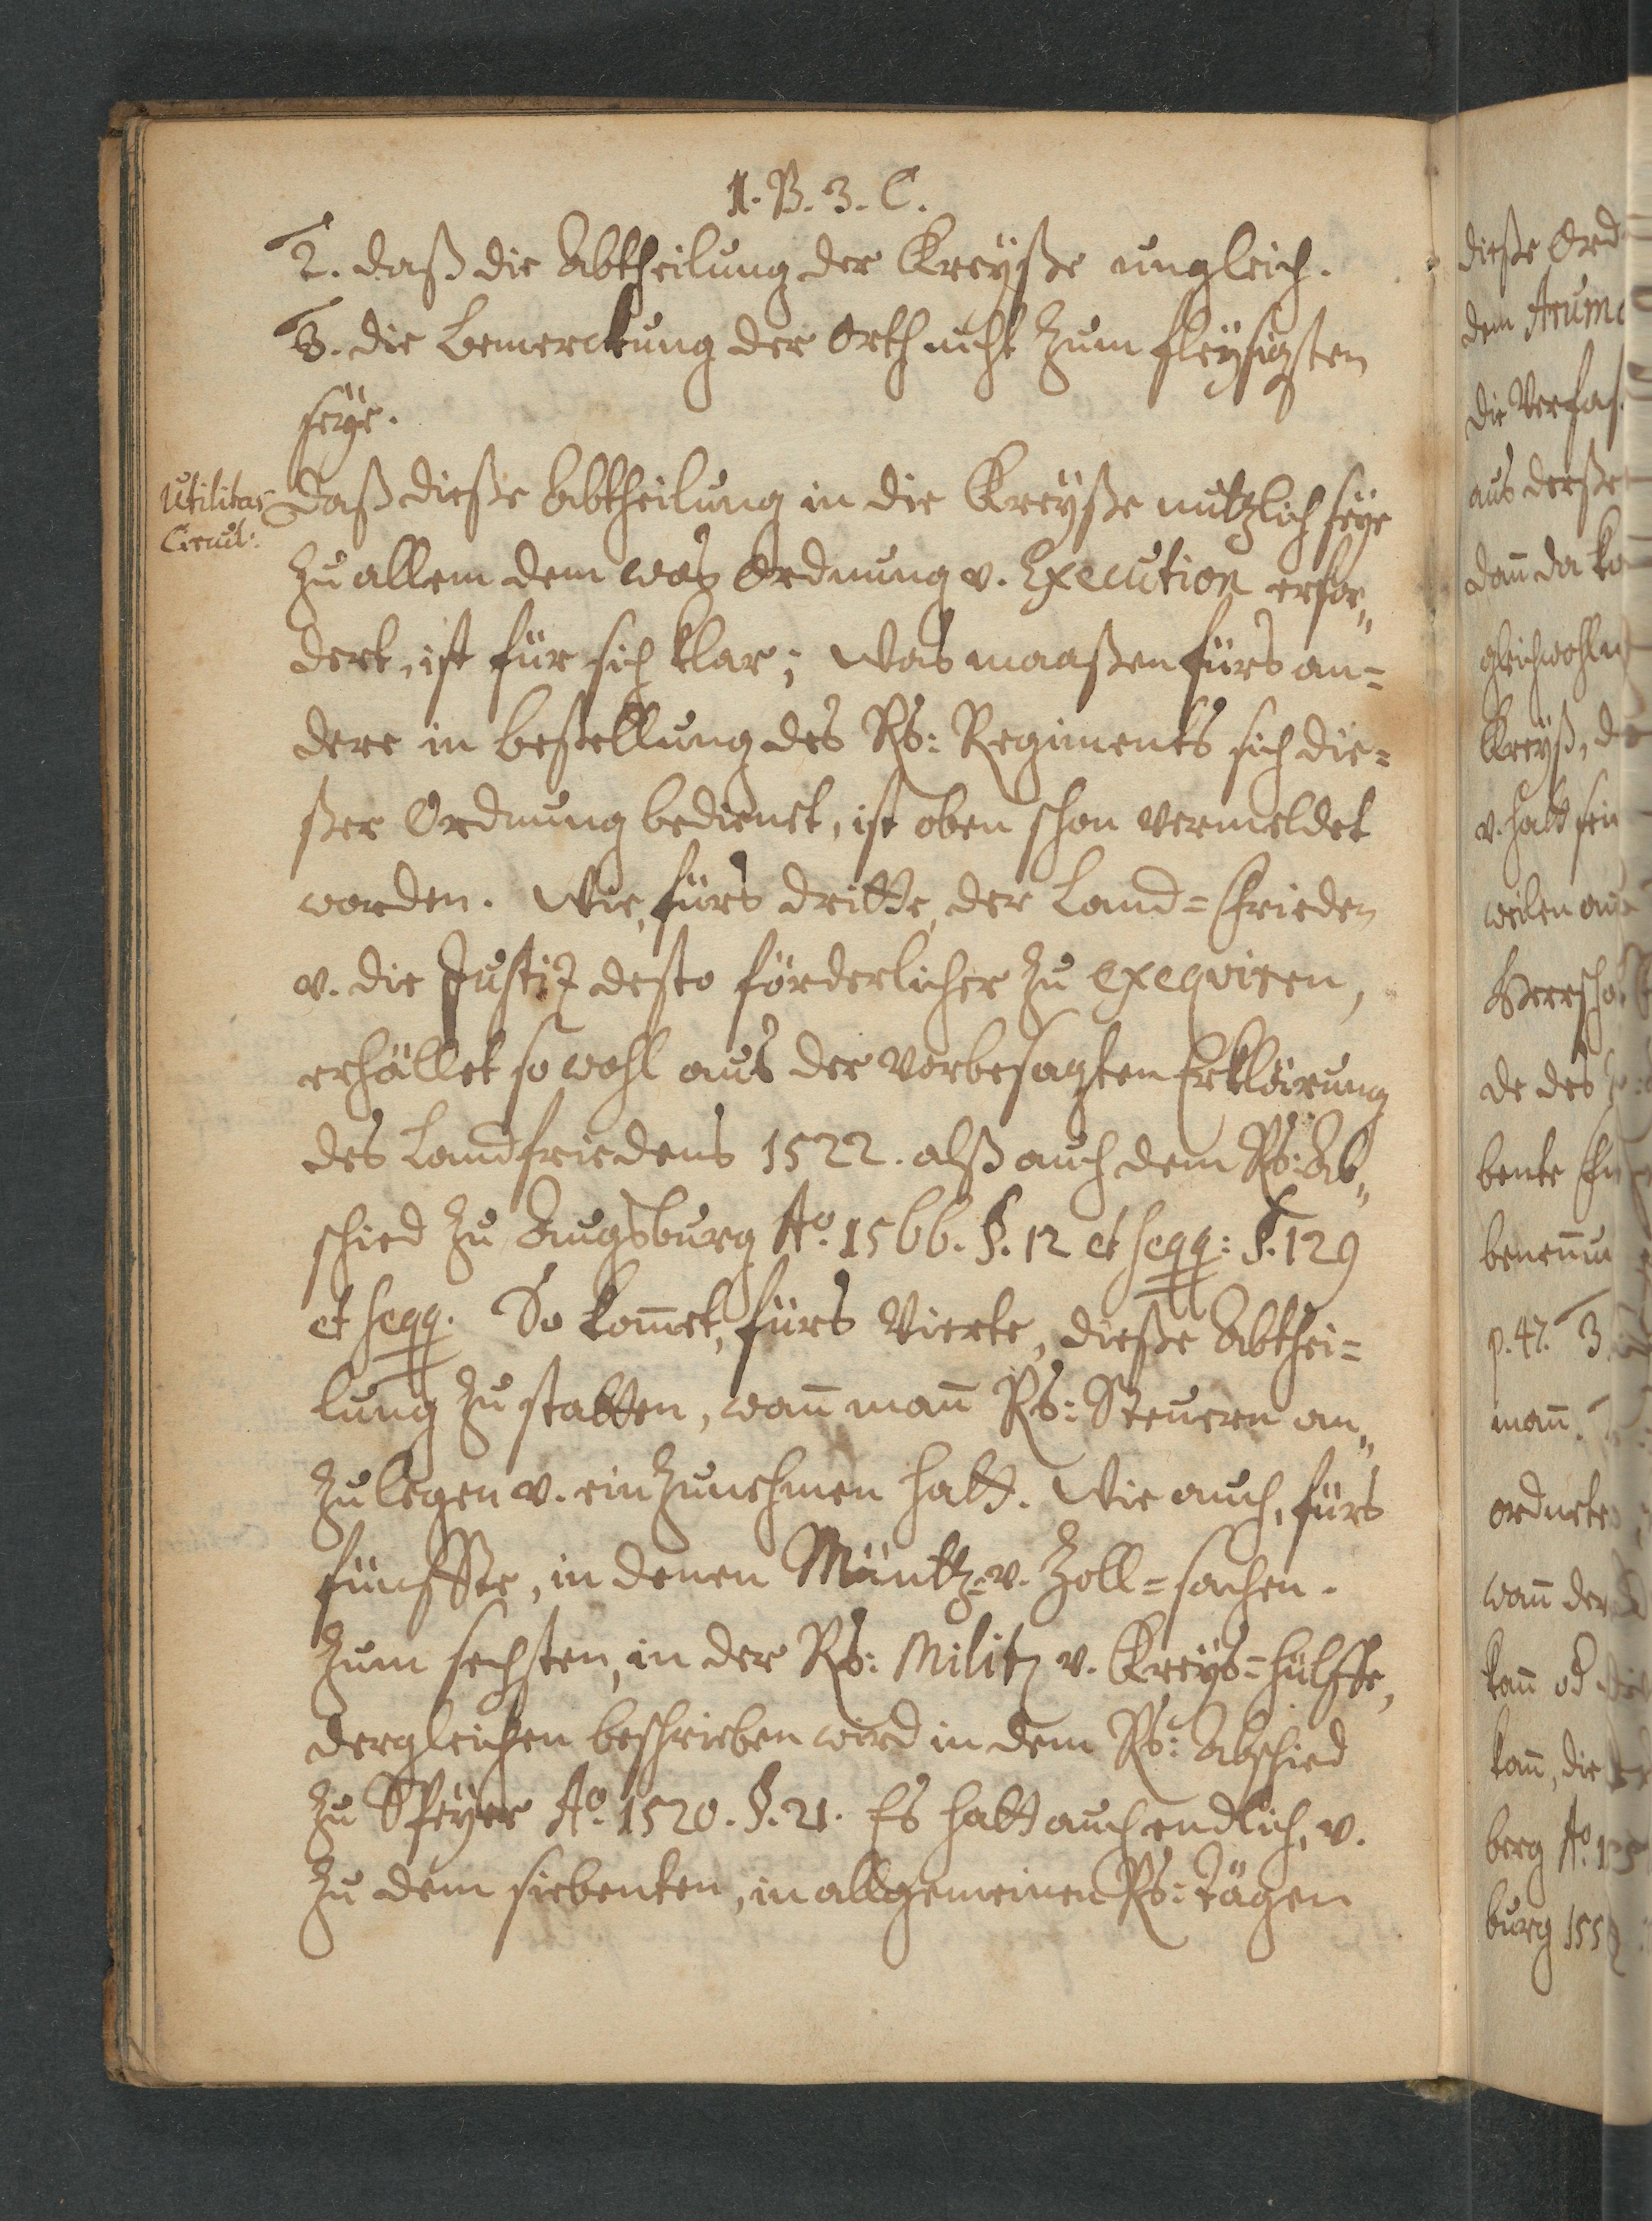 1. B. 3. C.
2. daß die Abtheilung der Kreÿße ungleich.
3. die Bemerckung der Orth nicht zum fleÿsigsten
seÿe.
Utilitas
Circul:
Daß dieße Abtheilung in die Kreÿße nützlich seÿe
zu allem dem was Ordnung v. Execution erfor„
dert, ist für sich klar; Was maaßen fürs an=
dere in Bestellung des Rs: Regiments sich die=
ßer Ordnung bedienet, ist oben schon vermeldet
worden. Wie, fürs dritte, der Land=Frieden
v. die Justiz desto förderlicher zu exeqviren,
erhället so wohl aus der vorbesagten Erklärung
des Landfriedens 1522. alß auch dem Rs: Ab„
schied zu Augsburg Aº. 1566. §. 12 et seqq: §. 129
et seqq. So kom̄et, fürs Vierte, dieße Abthei=
lung zu statten, wan̄ man̄ Rs: Steuern an„
zulegen v. einzunehmen hatt. Wie auch, fürs
fünffte, in denen Müntz= v. Zoll=sachen.
Zum sechsten, in der Rs: Militz v. Kreÿs=hülffe,
dergleichen beschrieben wird in dem Rs: Abschied
zu Speÿer Aº. 1520. §. 21. Es hatt auch endlich, v.
zu dem siebenten, in allgemeinen Rs: tägen
dieße Ord
dem Arum
die Verfas
aus derße
dan̄ da
gleichwohl
Kreÿß, d
v. hatt sein
weilen
Herrscha
de des
bente
benen̄u
p. 47. 3.
man̄.
ordnete
wan̄ der
kan̄ od
kan̄, die
berg Aº. 1
burg 155